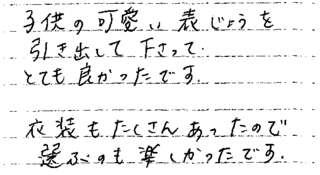 子供の可愛い表じょうを
引き出して下さって.
とても良かったです.
衣装もたくさんあったので
選ぶのも楽しかったです.